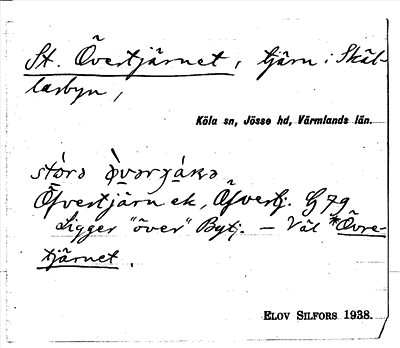 St. Övertjärnet, tjärn i Skäl-
larbyn,
Köla sn, Jösse hd, Värmlands län.
stórə
Öfvertjärn ek, Öfvertj. G 79
Ligger "över" Bytj. — Väl *Övre-
tjärnet.
ELOV SILFORS 1938.